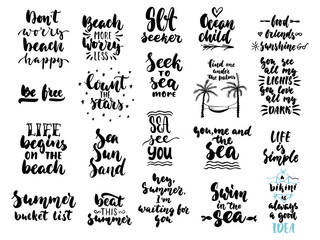 Don't
worry
beach
happy
Beach
MORE
Worry
LESS
seeker
Ocean
child
Good
friends
Sunshine
Be free
Count
the
Stars
Seek
to SEA
more
find me
under
the palms
You see
all my
LIGHTS
You love
all my
DARK
LIFE
begins
ON THE
beach
Sea
Sun
Sand
SEA
see
YOU
you, me and
the
Sea
LIFE
is
Simple
Summer
bucket list
beat
THIS
Summer
hey,
Summer, I'm
waiting for
you
Swim
in the
Sea
bikini
is
always
a good
IDEA